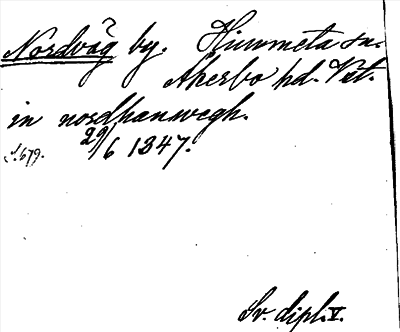 Nordväg by. Himmeta sn.
Åkerbo hd. Vstl.
in nordhanwegh.
S. 679. 29/6 1347.
Sv. dipl. V.